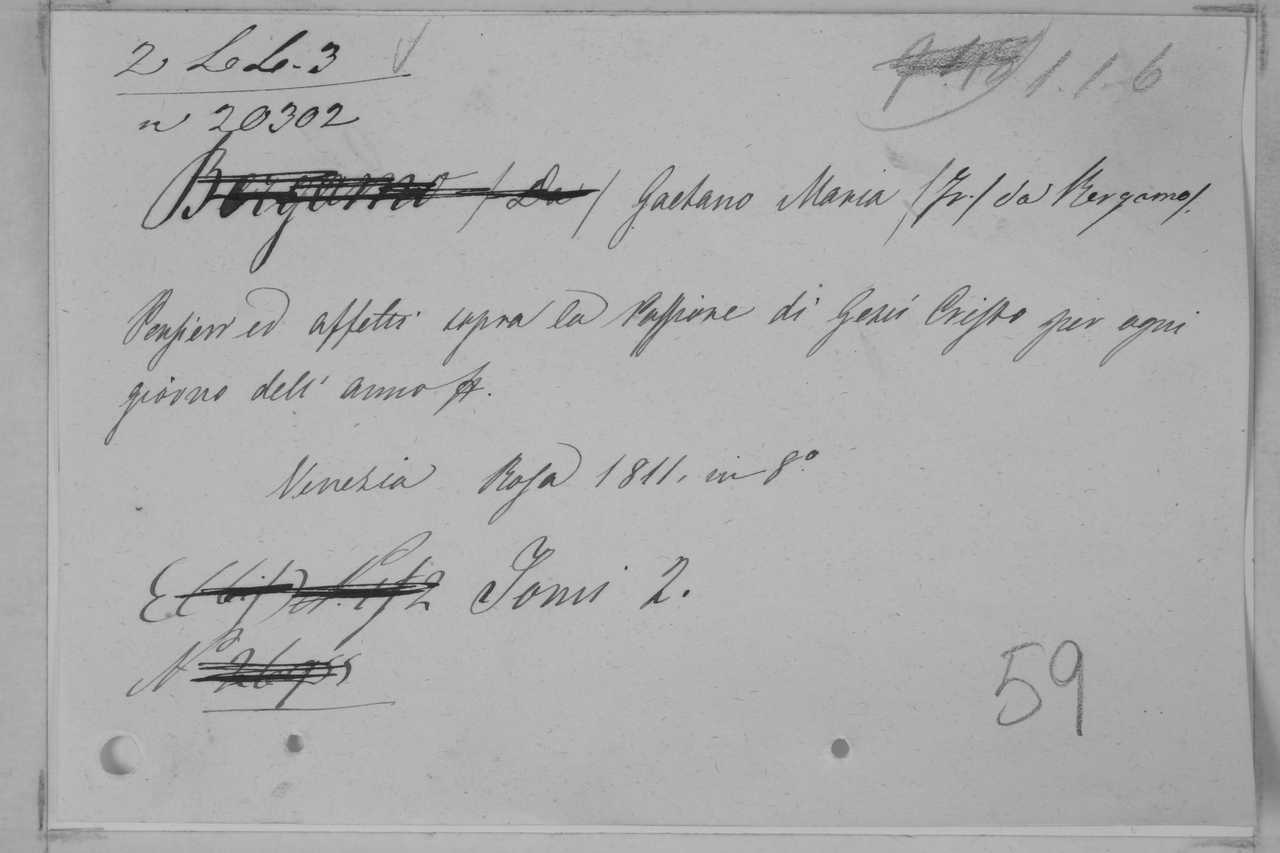 2 LL-3
1.1.6
n 20302
Bergamo /Da/ Gaetano Maria /Fr./ da Bergamo/.
Pensieri ed affetti sopra la Passione di Gesù Cristo per ogni
giorno dell' anno
Venezia Rosa 1811. in 8°
Tomi 2.
N°
59